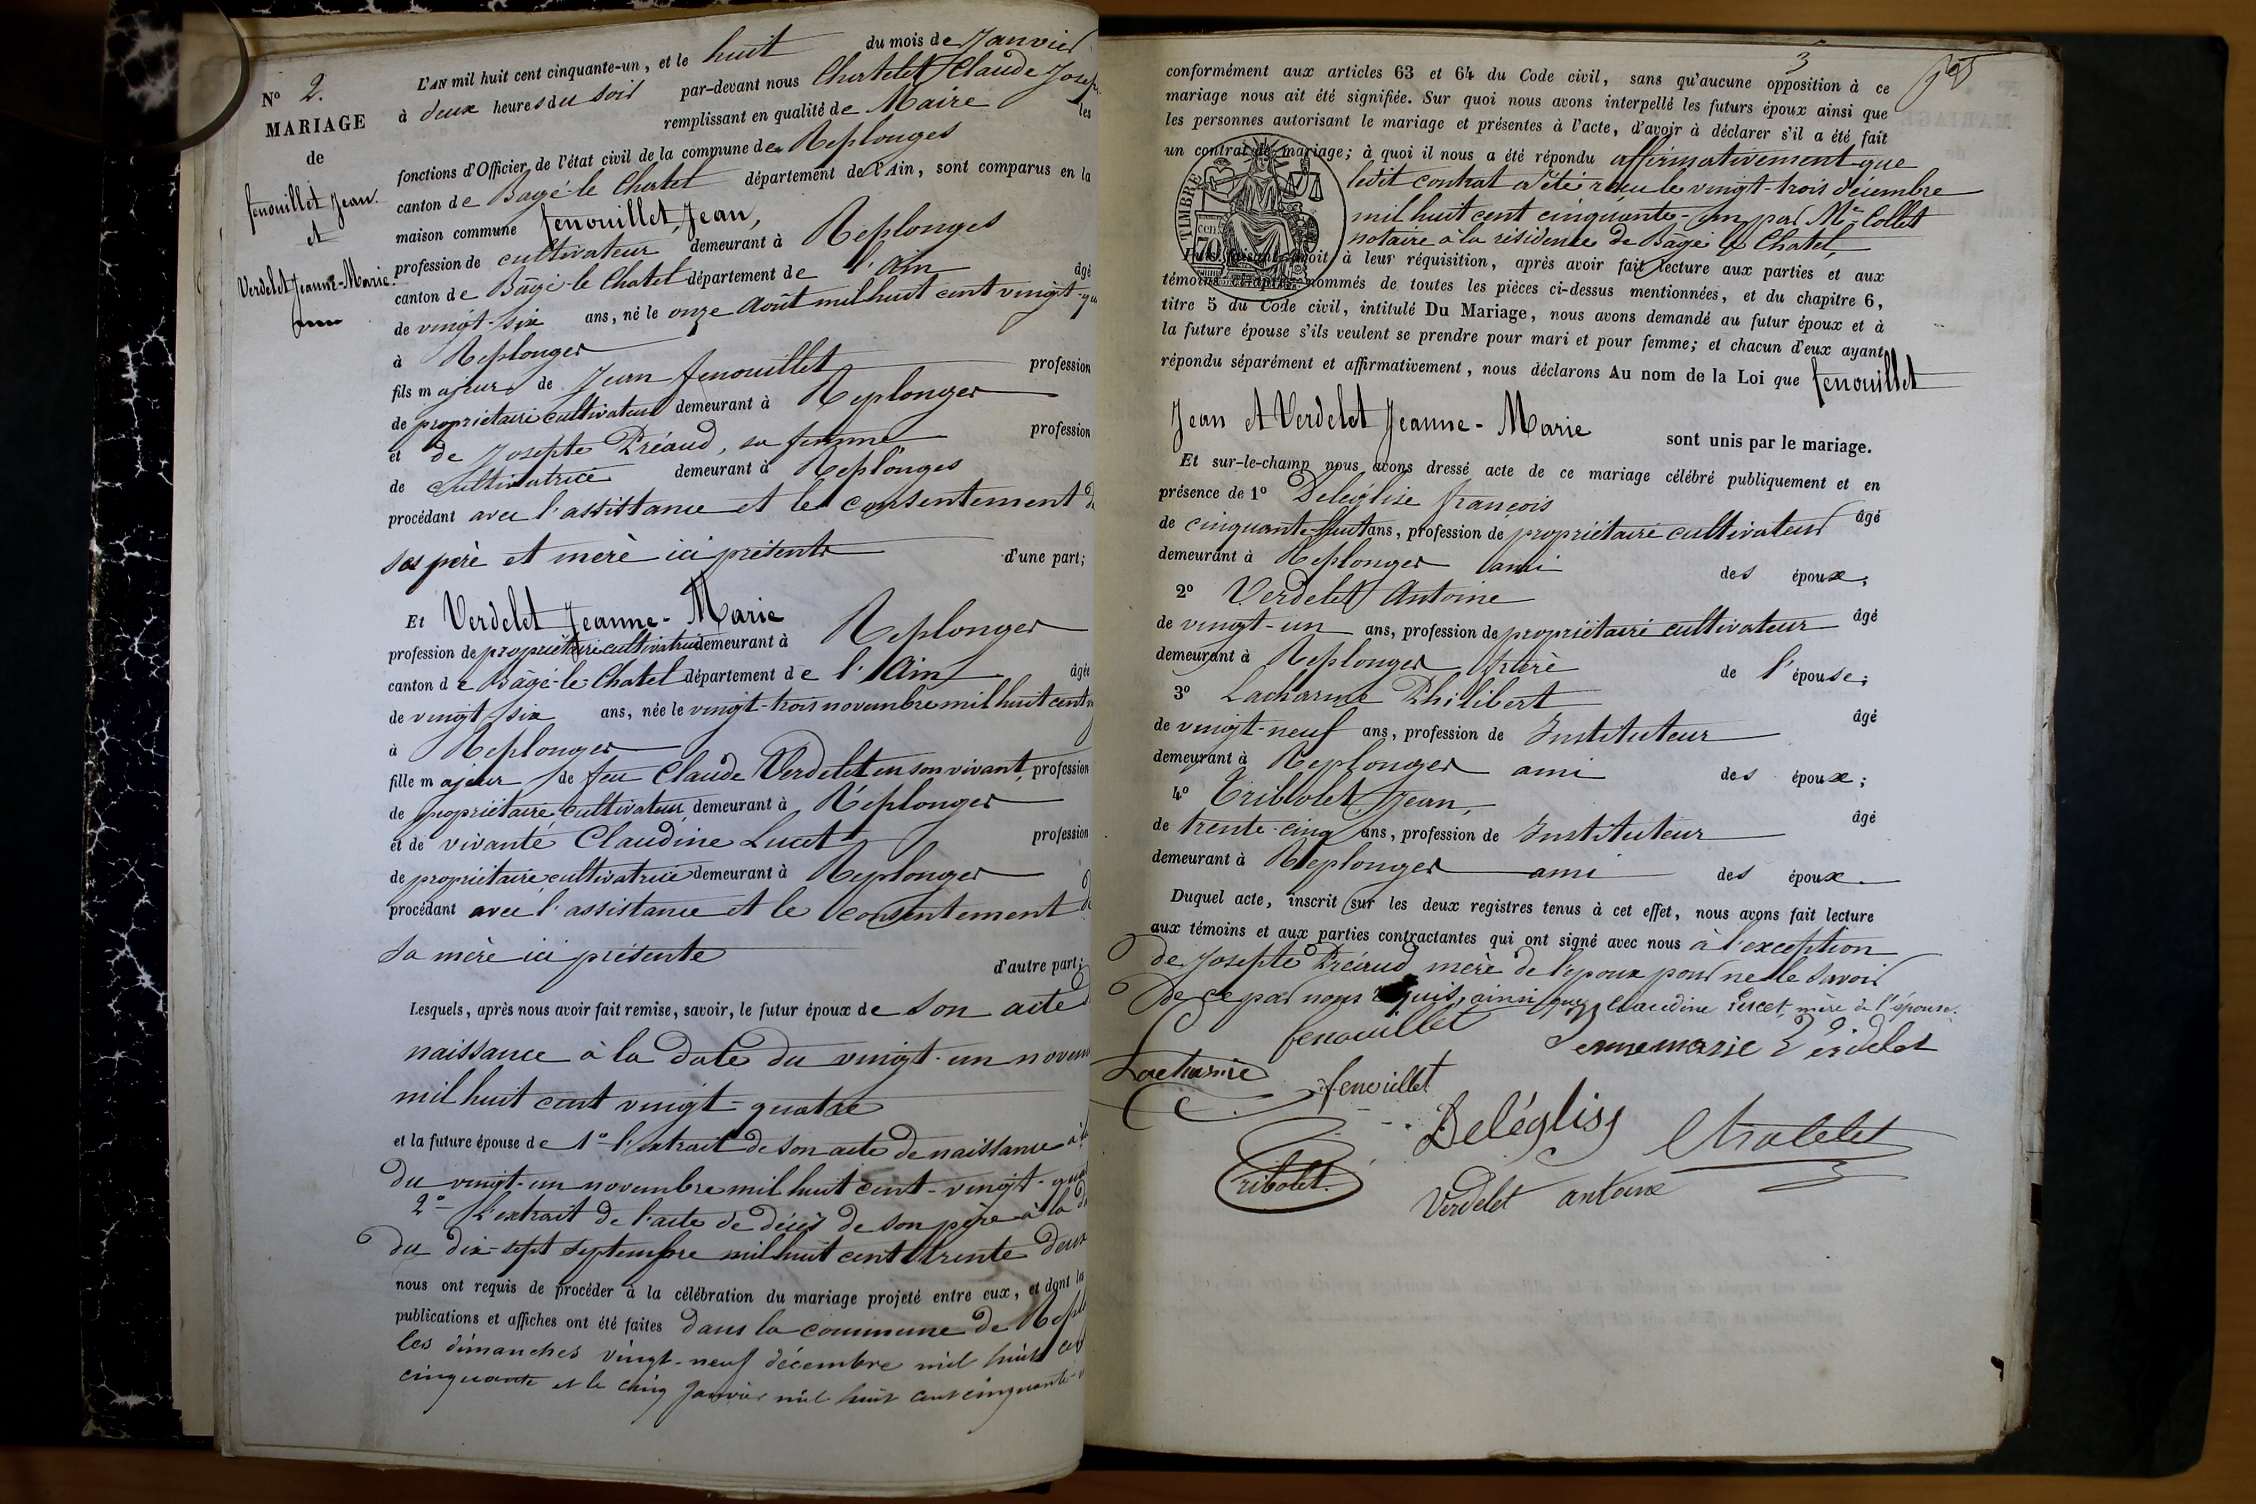 N° 2.
MARIAGE
de
fenouillet Jean.
et
Verdelet Jeanne-Marie.
L'AN mil huit cent cinquante-un, et le huit du mois de Janvier
à deux heures du soir par-devant nous Chatelet Claude Joseph
remplissant en qualité de Maire les
fonctions d'Officier de l'état civil de la commune de Replonges
canton de Bagé-le Chatel département de l'Ain, sont comparus en la
maison commune fenouillet, Jean,
profession de cultivateur, demeurant à Replonges
canton de Bâgé-le Chatel département de l'Ain âgé
de vingt-six ans, né le onze Août mil huit cent vingt-qu
à Replonges
fils majeur de Jean fenouillet profession
de propriétaire cultivateur demeurant à Replonges
et de Josephte Préaud, sa femme profession
de cultivatrice demeurant à Replonges
procédant avec l'assistance et le consentement de
ses père et mère ici présents d'une part;
Et Verdelet Jeanne-Marie
profession de propriétaire cultivatrice demeurant à Replonges
canton de Bâgé-le-Chatel département de l'Ain âgée
de vingt-six ans, née le vingt-trois novembre mil huit cent v
à Replonges
fille majeur de feu Claude Verdelet en son vivant, profession
de propriétaire cultivateur, demeurant à Replonges
et de vivante Claudine Lucet profession
de propriétaire cultivatrice demeurant à Replonges
procédant avec l'assistance et le consentement de
sa mère ici présente d'autre part;
Lesquels, après nous avoir fait remise, savoir, le futur époux de son acte d
naissance à la date du vingt-un novem
mil huit cent vingt-quatre
et la future épouse de 1° l'extrait de son acte de naissance à la
du vingt-un novembre mil huit cent-vingt-qua
2° L'extrait de l'acte de décès de son père à la d
du dix-sept septembre mil huit cent trente deux
nous ont requis de procéder à la célébration du mariage projeté entre eux, et dont les
publications et affiches ont été faites dans la commune de Repl
les dimanches vingt-neuf décembre mil huit cent
cinquante et le cinq Janvier mil huit cent cinquante-u
3
conformément aux articles 63 et 64 du Code civil, sans qu'aucune opposition à ce
mariage nous ait été signifiée. Sur quoi nous avons interpellé les futurs époux ainsi que
les personnes autorisant le mariage et présentes à l'acte, d'avoir à déclarer s'il a été fait
un contrat de mariage; à quoi il nous a été répondu affirmativement que
ledit contrat a été reçu le vingt-trois décembre
mil huit cent cinquante-un par Me Collet
notaire à la résidence de Bâgé le Chatel,
TIMBRE
70 cen
Puis faisant droit à leur réquisition, après avoir fait lecture aux parties et aux
témoins ci-après nommés de toutes les pièces ci-dessus mentionnées, et du chapitre 6,
titre 5 du Code civil, intitulé Du Mariage, nous avons demandé au futur époux et à
la future épouse s'ils veulent se prendre pour mari et pour femme; et chacun d'eux ayant
répondu séparément et affirmativement, nous déclarons Au nom de la Loi que fenouillet
Jean et Verdelet Jeanne-Marie sont unis par le mariage.
Et sur-le-champ nous avons dressé acte de ce mariage célébré publiquement et en
présence de 1° Deléglise françois âgé
de cinquante-huit ans, profession de propriétaire cultivateur
demeurant à Replonges ami des époux;
2° Verdelet Antoine âgé
de vingt-un ans, profession de propriétaire cultivateur
demeurant à Replonges frère de l'épouse;
3° Lacharme Philibert âgé
de vingt-neuf ans, profession de Instituteur
demeurant à Replonges ami des époux;
4° Tribolet, Jean, âgé
de trente-cinq ans, profession de Instituteur
demeurant à Replonges ami des époux.
Duquel acte, inscrit sur les deux registres tenus à cet effet, nous avons fait lecture
aux témoins et aux parties contractantes qui ont signé avec nous à l'exception
de Josephte Préaud mère de l'époux pour ne le savoir
de ce par nous requis, ainsi que Claudine Lucet, mère de l'épouse.
fenouillet Jennemarie Verdelet
Lacharme fenouillet
Deléglise Chatelet
Tribolet. Verdelet antoine